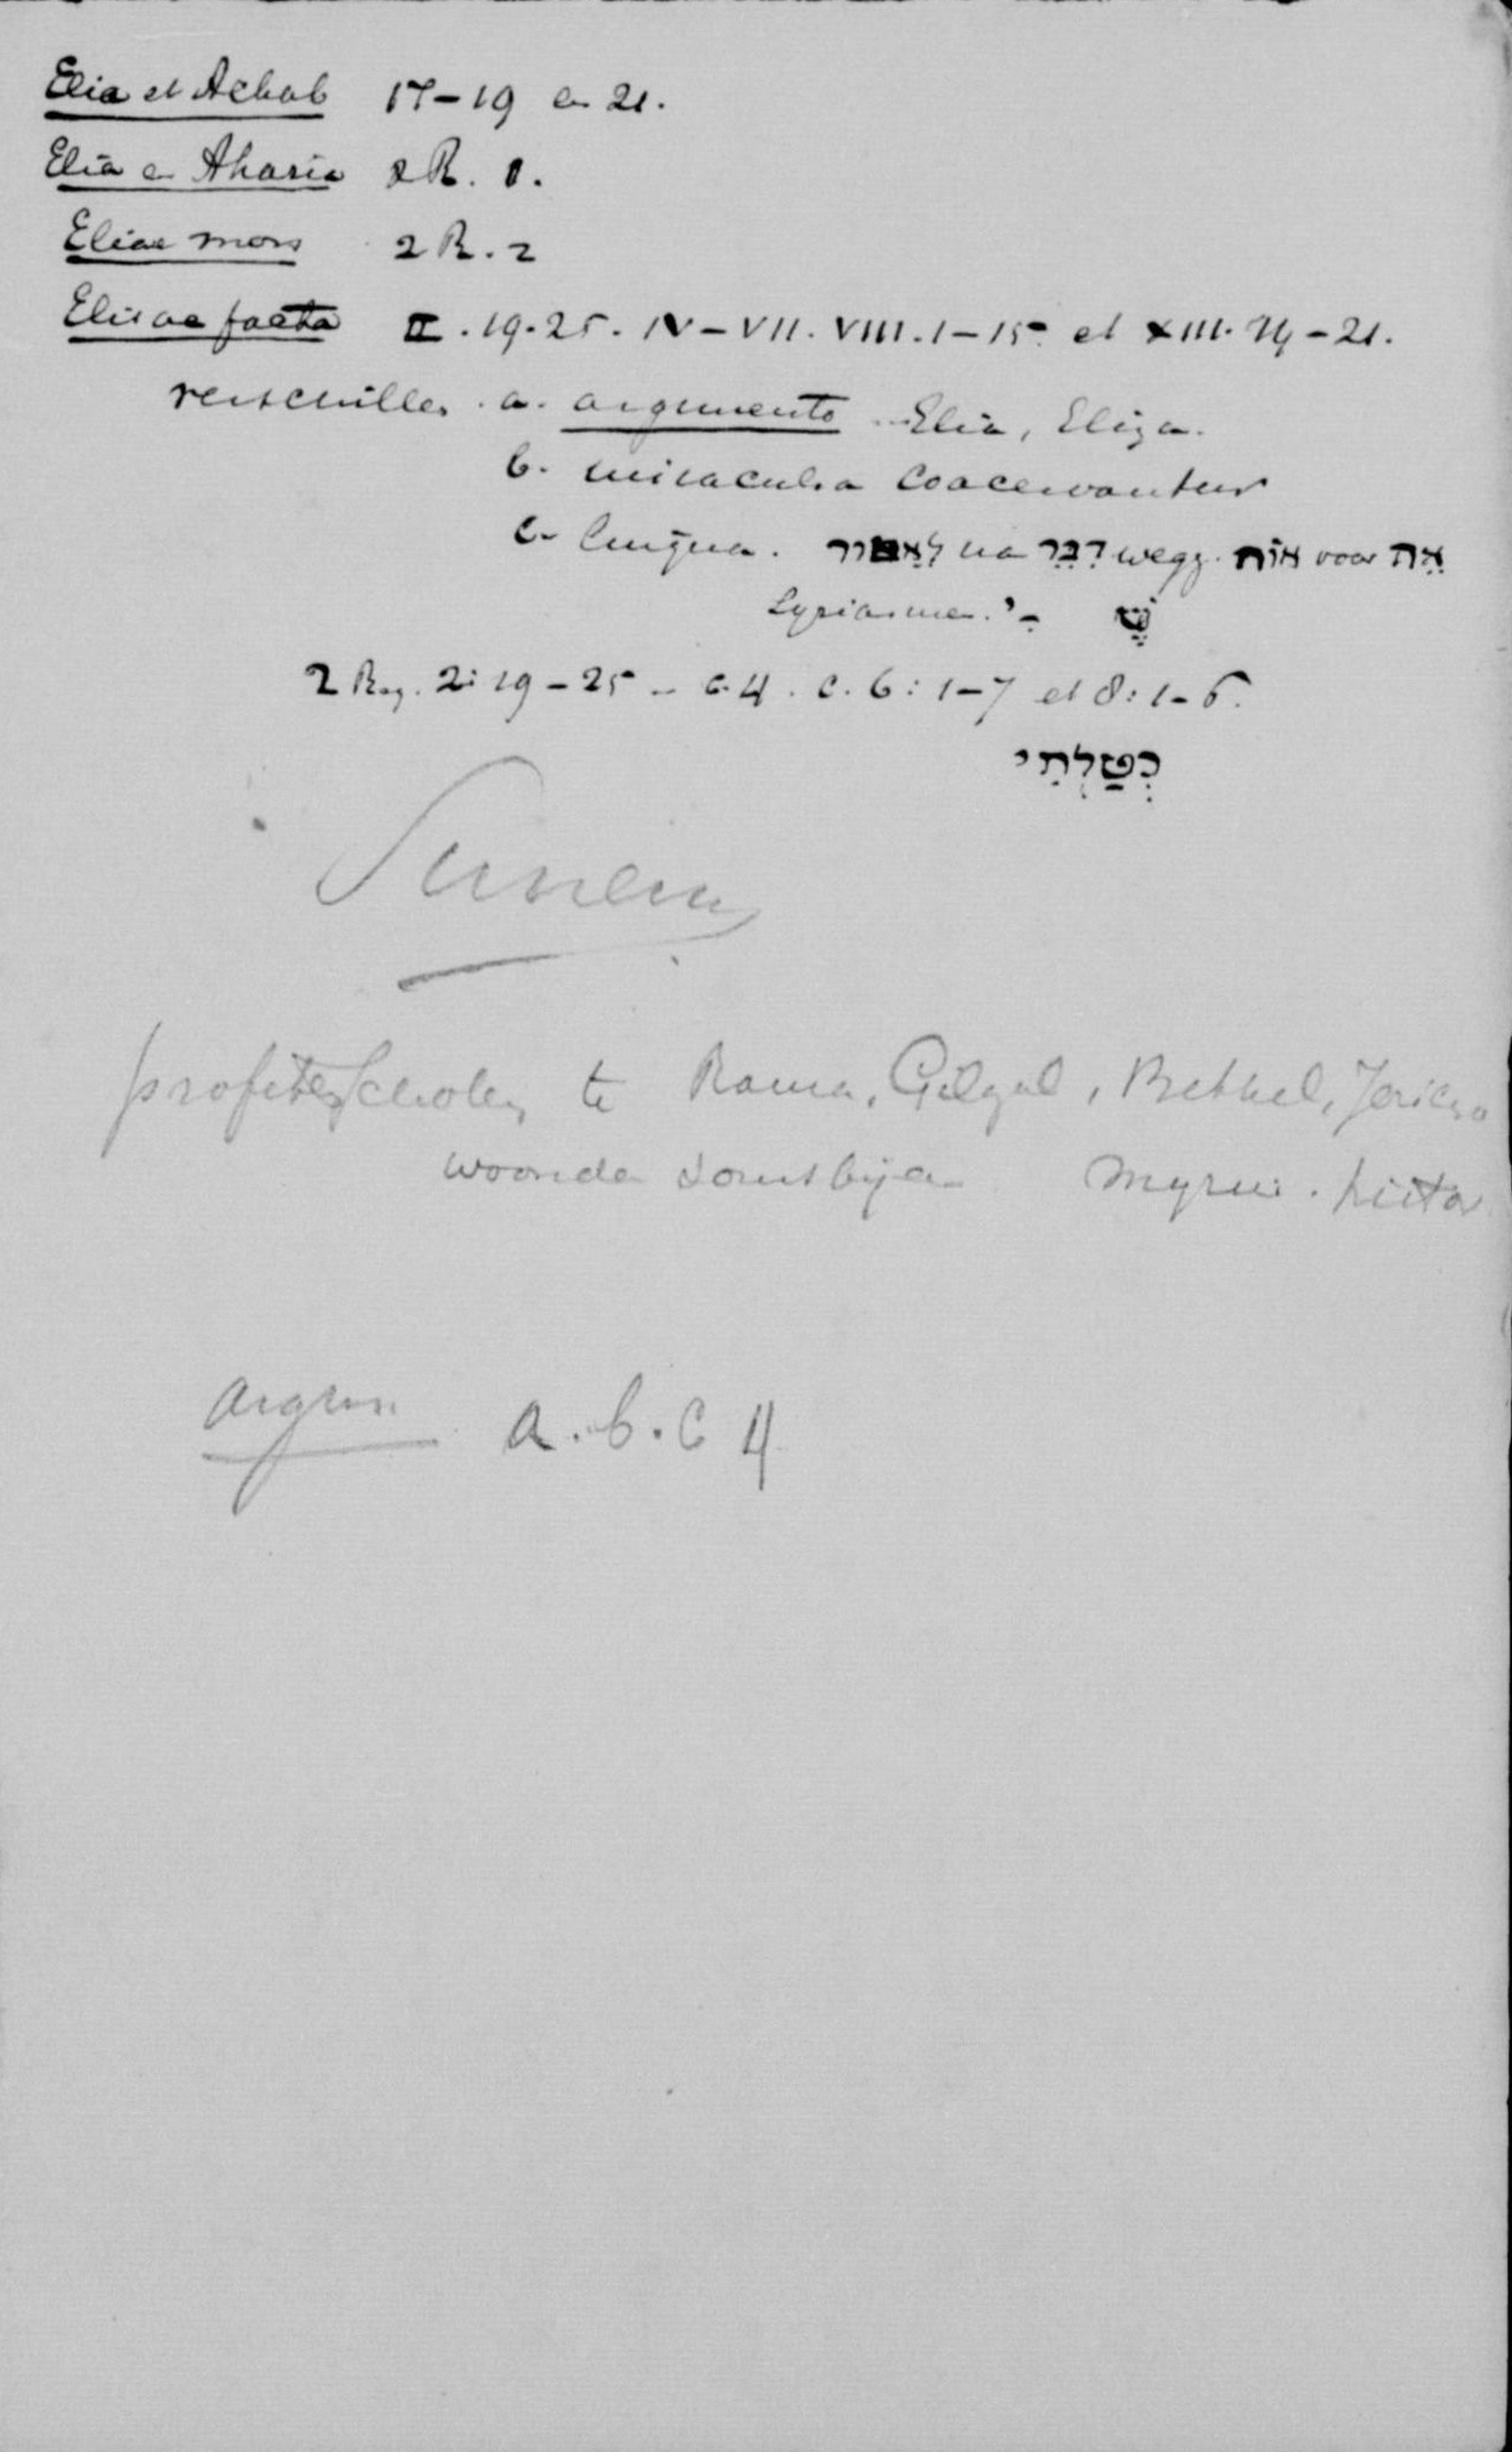 Elia et Achab 17-19 en 21.
Elia en Ahazia 2R. 1.
Eliae mors 2R. 2
Elisae facta II. 19-25. IV-VII. VIII. 1-15 et XIII. 14-21.
verschillen. a. argumento Elia, Eliza.
b. miracula coacervantur
c. lingua. לֵאמֹר na דִּבֶּר wegg. אוֹת voor אֵת
Syriasmen.
2 Reg. 2:19-25 - c. 4. c. 6:1-7 et 8:1-6.
Sunem
profetenscholen te Rama, Gilgal, Bethel, Jericho
woonden soms bijeen
Argum a. b. c 4